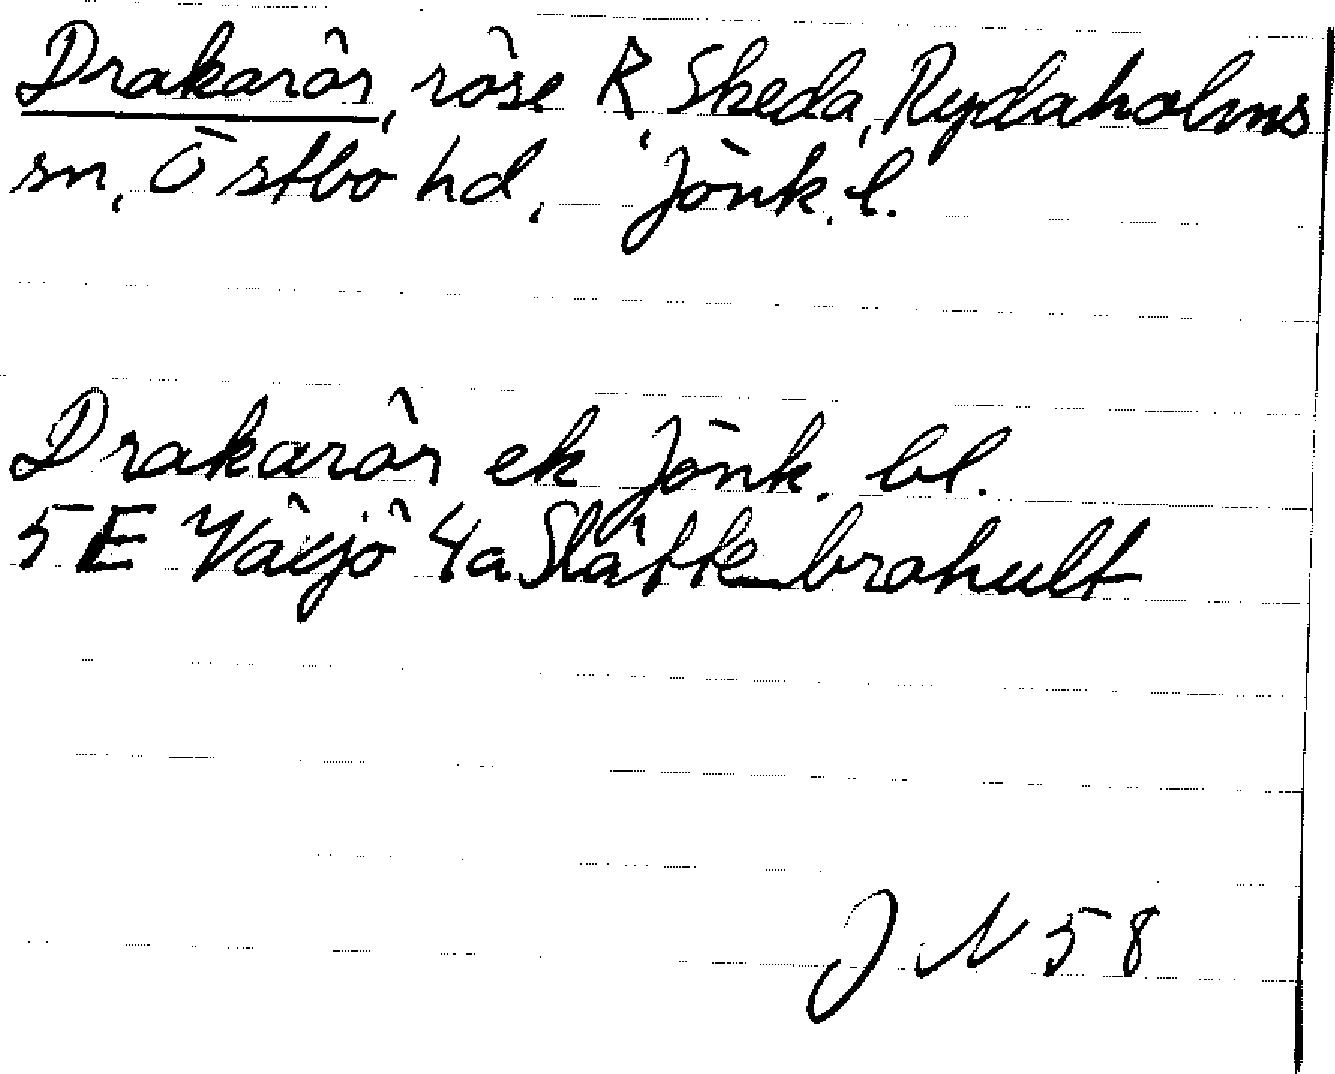 Drakarör, röse R, Skeda, Rydaholms
sn, Östbo hd, Jönk. l.
Drakarör ek Jönk. bl.
5E Växjö 4a Slättebrohult
J N 58